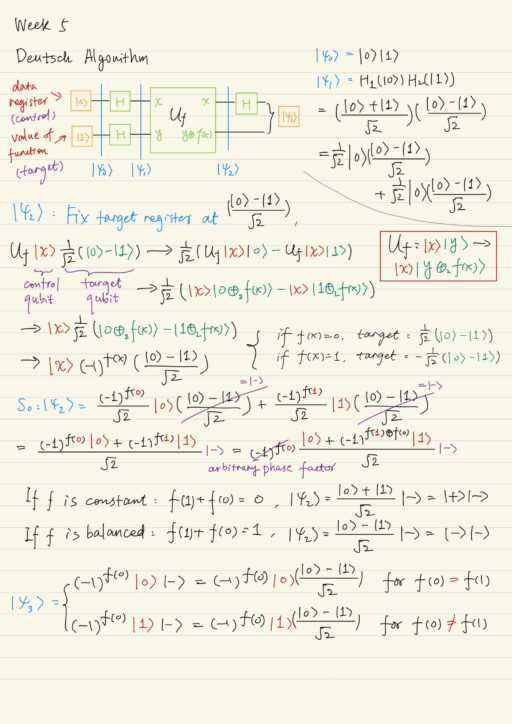 Week 5
Deutsch Algorithm
data register (control) → |0⟩ H x U_f x H |ψ₃⟩
value of function (target) → |1⟩ H y y⊕f(x)
|ψ₀⟩ |ψ₁⟩ |ψ₂⟩
|ψ₀⟩ = |0⟩|1⟩
|ψ₁⟩ = H₁(|0⟩) H₂(|1⟩)
= (|0⟩+|1⟩/√2)(|0⟩-|1⟩/√2)
= 1/√2 |0⟩(|0⟩-|1⟩/√2)
+ 1/√2 |0⟩(|0⟩-|1⟩/√2)
|ψ₂⟩ = Fix target register at (|0⟩-|1⟩/√2),
U_f |x⟩ 1/√2 (|0⟩-|1⟩) → 1/√2 (U_f|x⟩|0⟩ - U_f|x⟩|1⟩)
control qubit target qubit
→ 1/√2 (|x⟩|0⊕₂f(x)⟩ - |x⟩|1⊕₂f(x)⟩)
U_f = |x⟩|y⟩ →
|x⟩|y⊕₂f(x)⟩
→ |x⟩ 1/√2 (|0⊕₂f(x)⟩ - |1⊕₂f(x)⟩)
→ |x⟩ (-1)^f(x) (|0⟩-|1⟩/√2)
{ if f(x)=0, target = 1/√2 (|0⟩-|1⟩)
if f(x)=1, target = -1/√2 (|0⟩-|1⟩)
So : |ψ₂⟩ = (-1)^f(0)/√2 |0⟩(|0⟩-|1⟩/√2) =|-⟩ + (-1)^f(1)/√2 |1⟩(|0⟩-|1⟩/√2) =|-⟩
= (-1)^f(0)|0⟩ + (-1)^f(1)|1⟩/√2 |-⟩ = (-1)^f(0) |0⟩ + (-1)^f(1)⊕f(0)|1⟩/√2 |-⟩
arbitrary phase factor
If f is constant : f(1)+f(0) = 0 , |ψ₂⟩ = |0⟩+|1⟩/√2 |-⟩ = |+⟩|-⟩
If f is balanced : f(1)+f(0) = 1 , |ψ₂⟩ = |0⟩-|1⟩/√2 |-⟩ = |-⟩|-⟩
|ψ₃⟩ = { (-1)^f(0) |0⟩|-⟩ = (-1)^f(0) |0⟩(|0⟩-|1⟩/√2) for f(0) = f(1)
(-1)^f(0) |1⟩|-⟩ = (-1)^f(0) |1⟩(|0⟩-|1⟩/√2) for f(0) ≠ f(1)